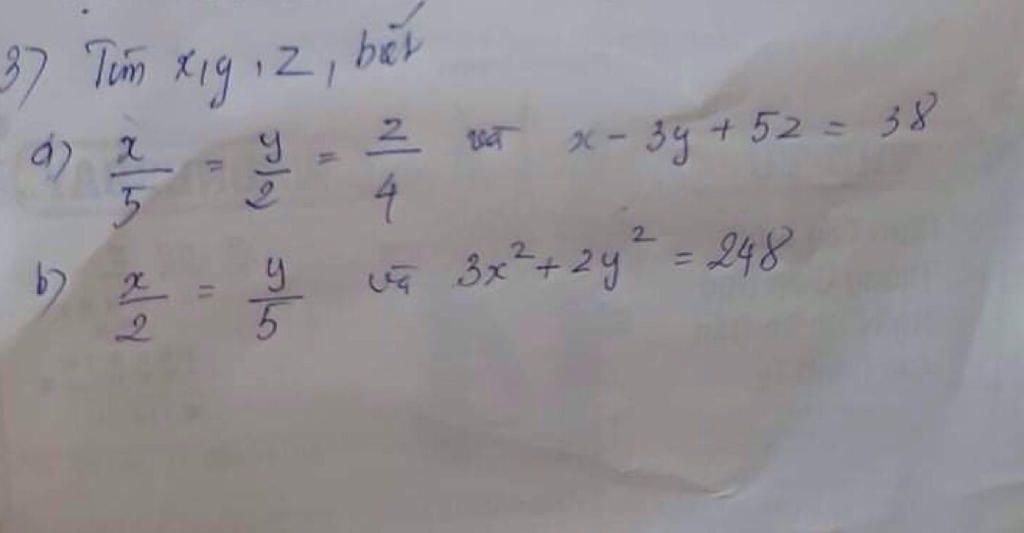 3) Tìm x, y, z, biết
a) x/5 = y/2 = z/4 và x - 3y + 5z = 38
b) x/2 = y/5 và 3x² + 2y² = 248